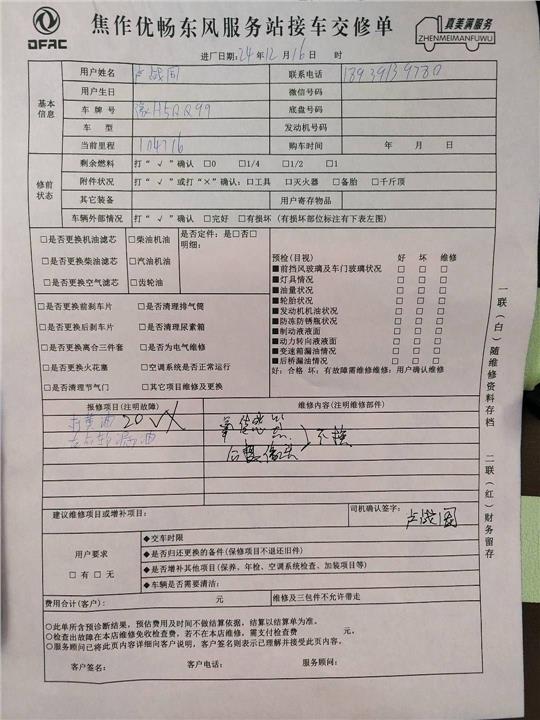 DFAC
焦作优畅东风服务站接车交修单
真美满服务
ZHENMEIMANFUWU
进厂日期:24年12月16日 时
基本信息
用户姓名 卢战国 联系电话
用户生日 微信号码
车牌号 豫H5QQ99 底盘号码
车型 发动机号码
当前里程 104716 购车时间 年 月 日
修前状态
剩余燃料 打“√”确认 □0 □1/4 □1/2 □1
附件状况 打“√”或打“×”确认:□工具 □灭火器 □备胎 □千斤顶
其它装备 用户寄存物品
车辆外部情况 打“√”确认 □完好 □有损坏(有损坏部位标注有下表左图)
□是否更换机油滤芯 □柴油机油 是否定件:是□否□
明细:
□是否更换柴油滤芯 □汽油机油
□是否更换空气滤芯 □齿轮油
□是否更换前刹车片 □是否清理排气筒
□是否更换后刹车片 □是否清理尿素箱
□是否更换离合三件套 □是否为电气维修
□是否更换火花塞 □空调系统是否正常运行
□是否清理节气门 □其它项目维修及更换
预检(目视) 好 坏 维修
■前挡风玻璃及车门玻璃状况 □ □ □
■灯具情况 □ □ □
■油量状况 □ □ □
■轮胎状况 □ □ □
■发动机机油状况 □ □ □
■防冻防锈瓶状况 □ □ □
■制动液液面 □ □ □
■动力转向液液面 □ □ □
■变速箱漏油情况 □ □ □
■后桥漏油情况 □ □ □
好:合格 坏:有故障需维修维修:用户确认维修
报修项目(注明故障) 维修内容(注明维修部件)
打黄油 20
不换
建议维修项目或增补项目: 司机确认签字: 卢战国
用户要求
□有 □无
◆交车时限
◆是否归还更换的备件(保修项目不退还旧件)
◆是否增补其他项目(保养、年检、空调系统检查、加装项目等)
◆车辆是否需要清洁:
费用合计(客户): 元 维修及三包件不允许带走
○此单所含预诊断结果,预估费用及时间不做结算依据,结算以结算单为准。
○检查出故障在本店维修免收检查费,若不在本店维修,需支付检查费 元。
○服务顾问已将此页内容详细向客户说明,客户签名则表示已理解并接受此页内容。
客户签名: 客户电话: 服务顾问:
一联(白)随维修资料存档
二联(红)财务留存